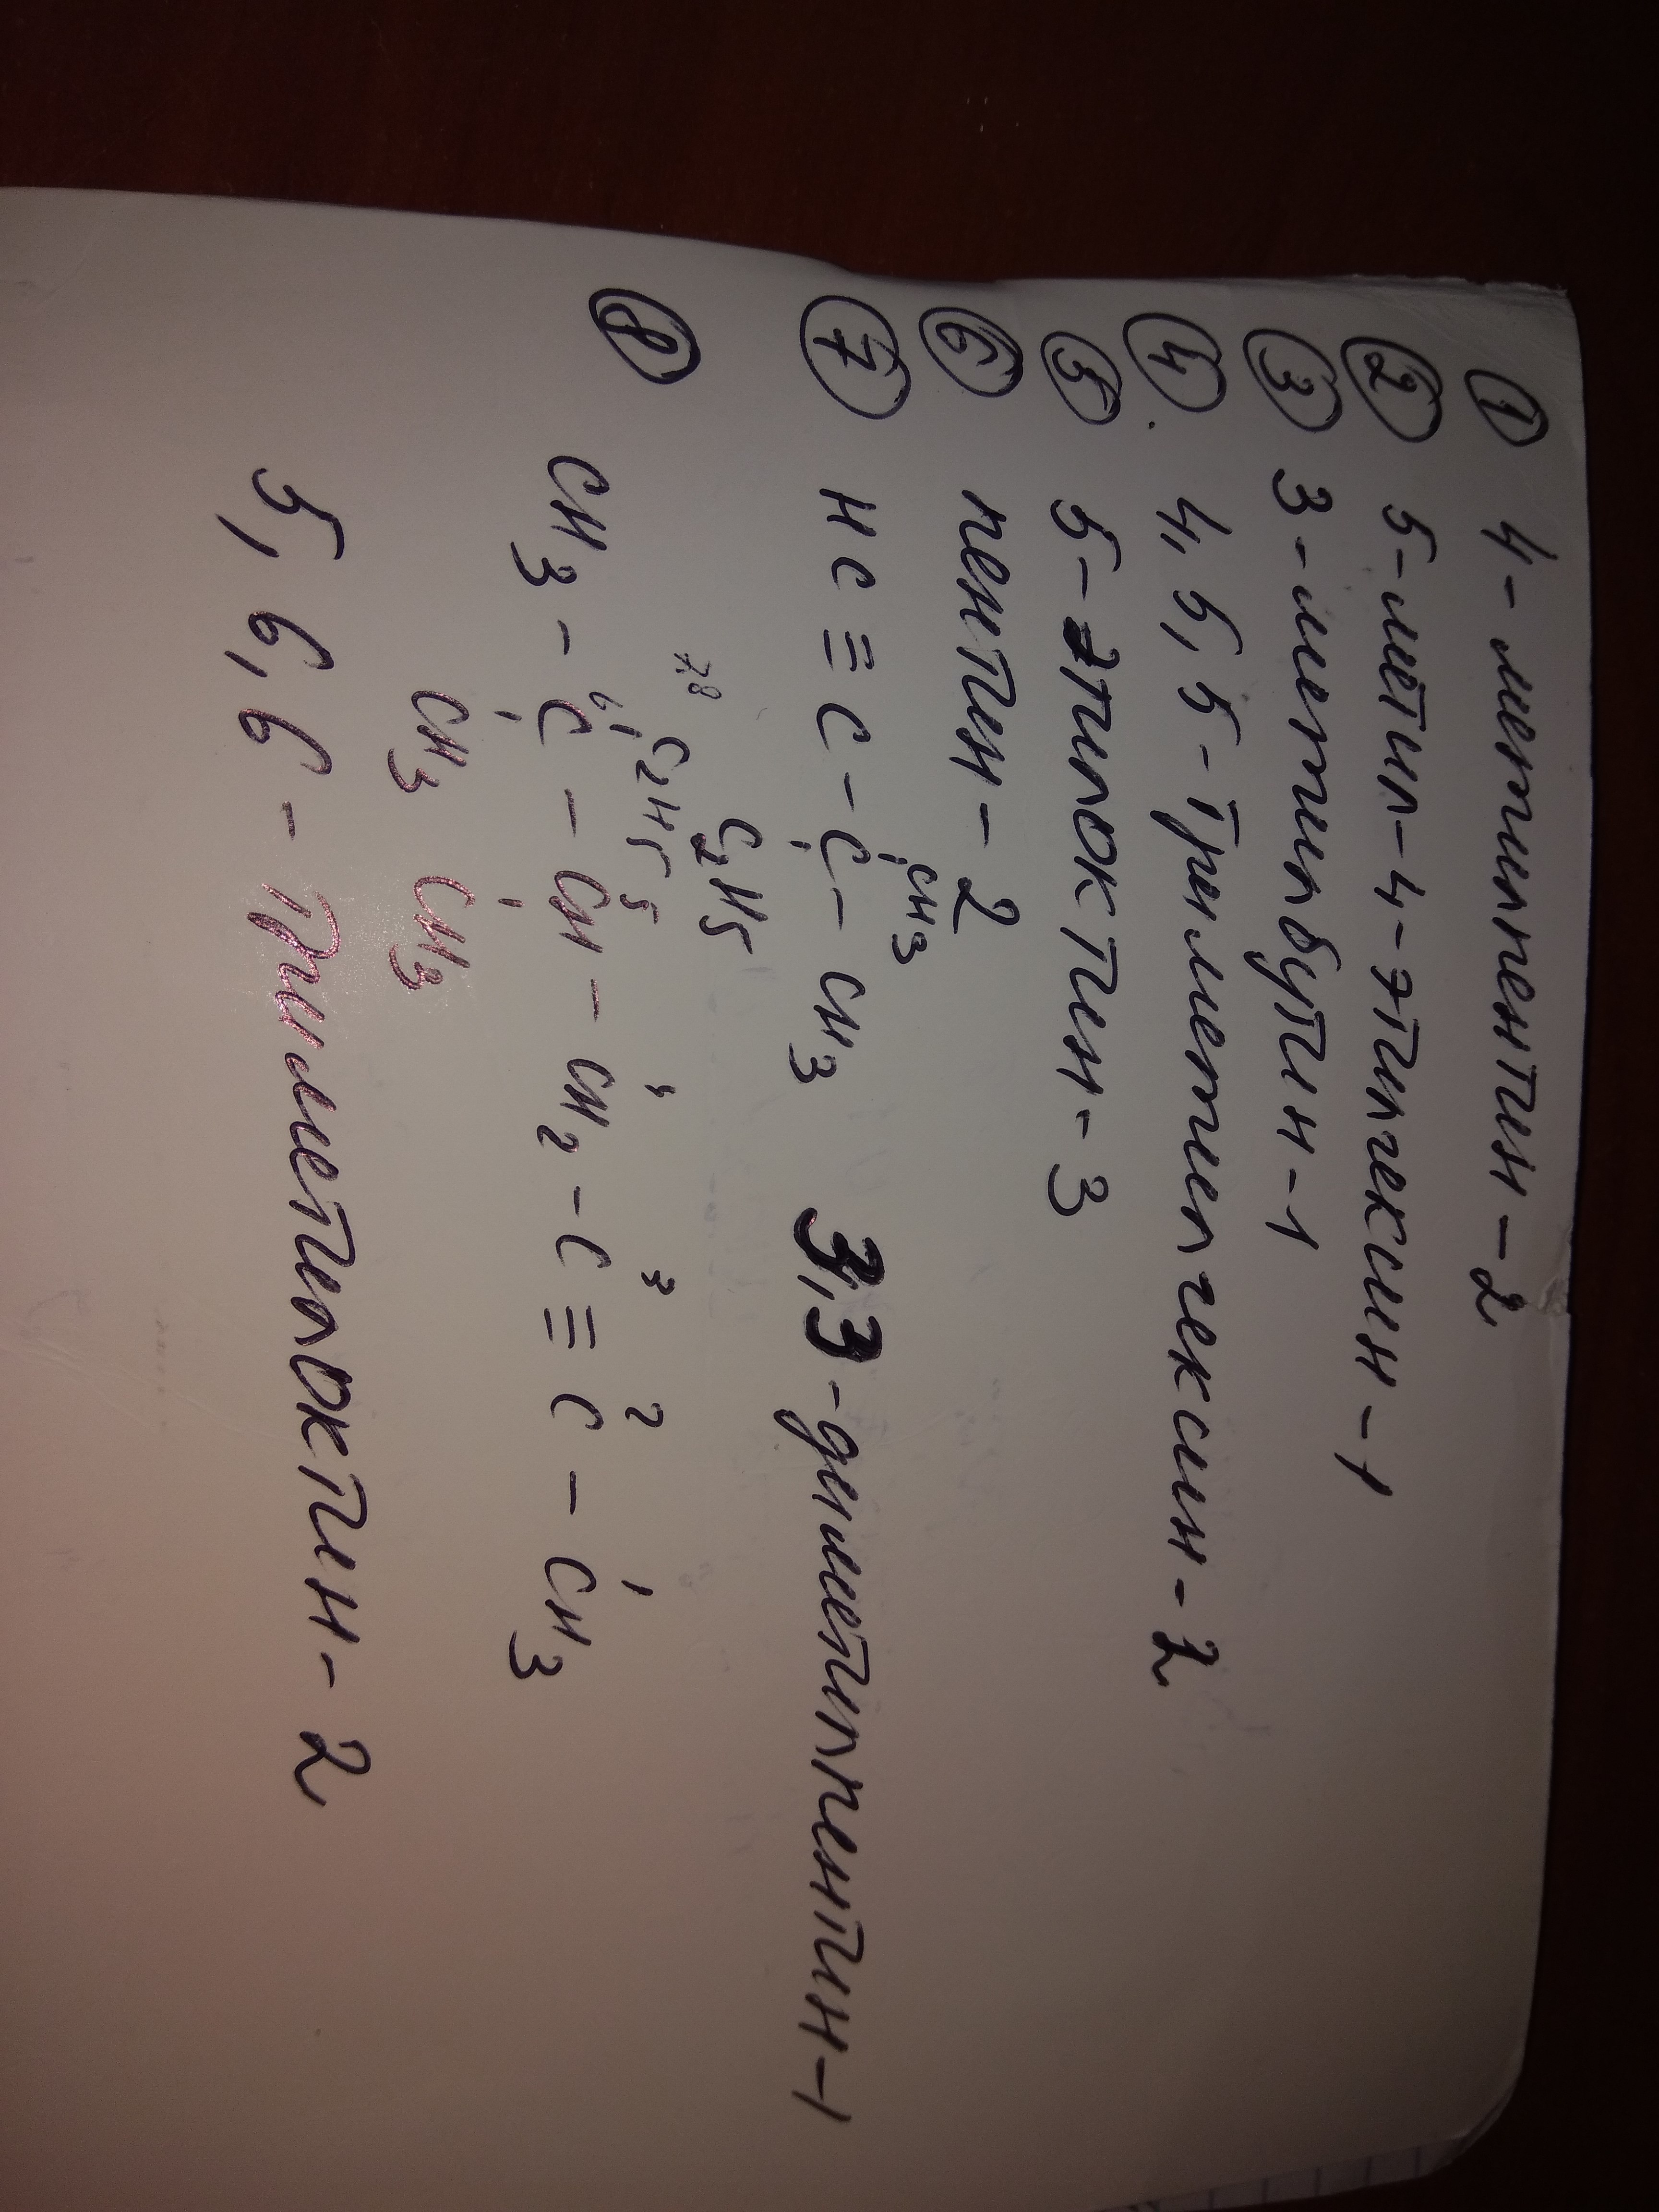 ① 4-метилпентин-2
② 5-метил-4-этилгексин-1
③ 3-метилбутин-1
④ 4,5,5-триметилгексин-2
⑤ 5-этилоктин-3
⑥ пентин-2
CH3
⑦ HC≡C-C-CH3 3,3-диметилпентин-1
C2H5
⑧
7,8 C2H5
6 5 4 3 2 1
CH3-C-CH-CH2-C≡C-CH3
CH3 CH3
5,6,6-триметилоктин-2